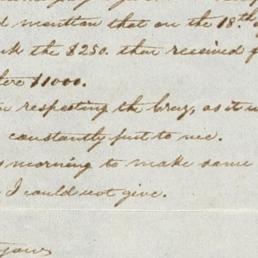 mention that on the 18th
the $250. then received
$1000.
respecting the brig, as it
constantly put to me.
morning to make some
I could not give.
Yours